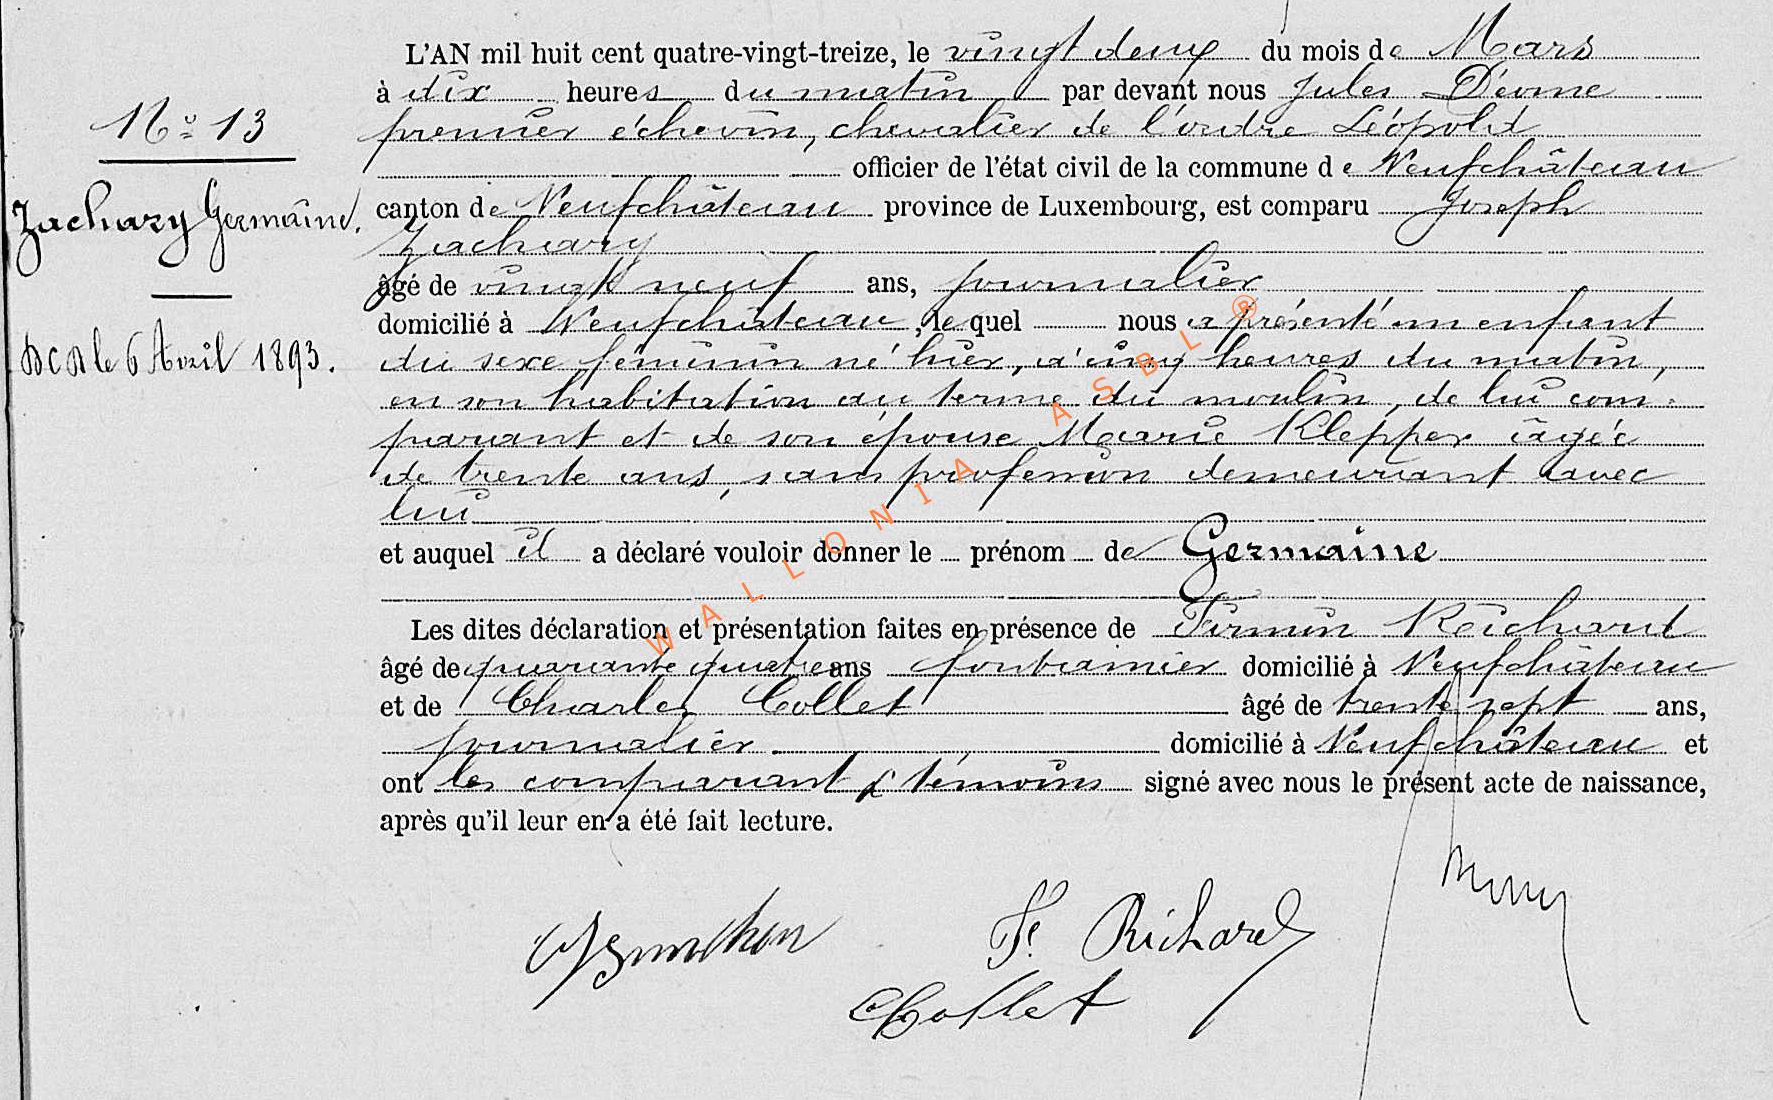 L'AN mil huit cent quatre-vingt-treize, le vingt deux du mois de Mars
à dix heures du matin par devant nous Jules
premier échevin, chevalier de l'ordre Léopold
officier de l'état civil de la commune de Neufchâteau
canton de Neufchâteau province de Luxembourg, est comparu Joseph
Zachary
âgé de vingt neuf ans, journalier
domicilié à Neufchâteau, lequel nous a présenté un enfant
du sexe féminin né hier, à cinq heures du matin,
en son habitation au terme du moulin, de lui com-
parant et de son épouse Marie Klepper âgée
de trente ans, sans profession demeurant avec
lui
et auquel il a déclaré vouloir donner le prénom de Germaine
Les dites déclaration et présentation faites en présence de Firmin Richard
âgé de quarante quatre ans fontainier domicilié à Neufchâteau
et de Charles Collet âgé de trente sept ans,
journalier domicilié à Neufchâteau et
ont les comparant & témoins signé avec nous le présent acte de naissance,
après qu'il leur en a été fait lecture.
No 13
Zachary Germaine.
DCD le 6 Avril 1893.
F. Richard
Collet
WALLONIA ASBL ®